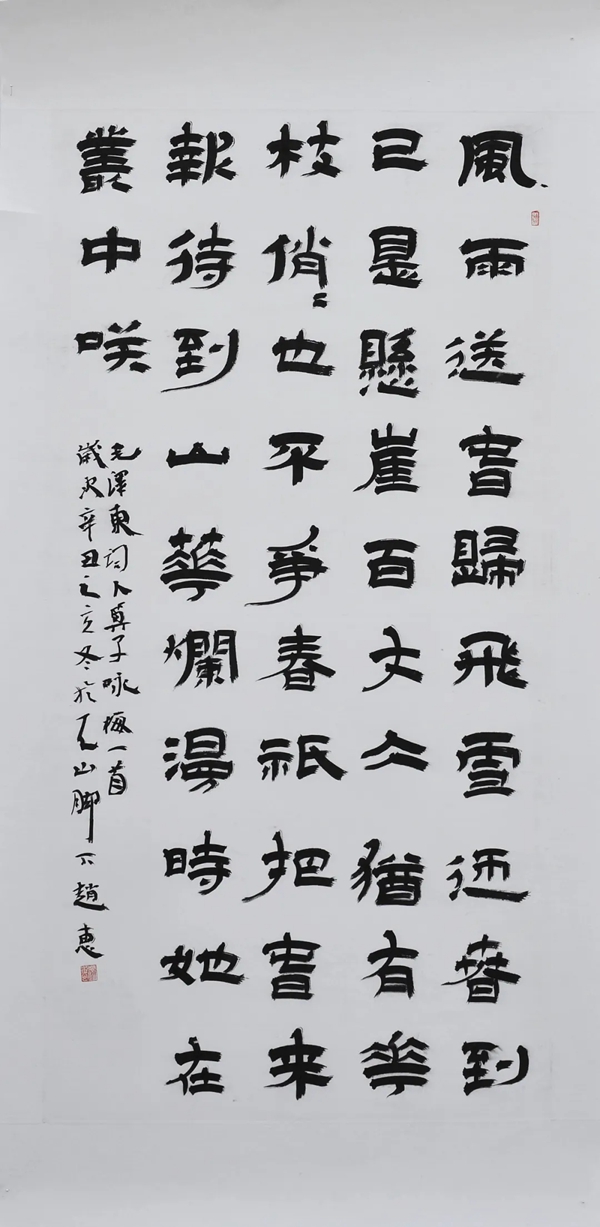 風雨送春歸飛雪迎春到
已是懸崖百丈仌猶有華
枝俏〻也不爭春祇把春来
報待到山華爛漫時她在
叢中咲
毛澤東詞卜算子咏梅一首
歲次辛丑之冬於天山脚下趙惠